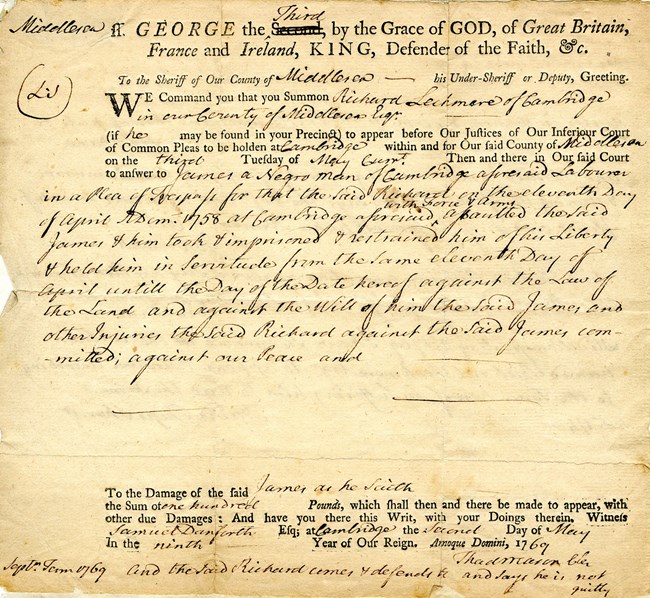 Middlesex ss. GEORGE the Second, Third by the Grace of GOD, of Great Britain,
France and Ireland, KING, Defender of the Faith, &c.
To the Sheriff of Our County of Middlesex his Under-Sheriff or Deputy, Greeting.
WE Command you that you Summon Richard Lechmere of Cambridge
in our County of Middlesex Esqr
(if he may be found in your Precinct) to appear before Our Justices of Our Inferiour Court
of Common Pleas to be holden at Cambridge within and for Our said County of Middlesex
on the third Tuesday of May Currt. Then and there in Our said Court
to answer to James a Negro man of Cambridge aforesaid Labourer
in a Plea of Trespass for that the said Richard on the eleventh Day
of April A Dom. 1758 at Cambridge aforesaid, with force & arms assaulted the said
James & him took & imprisoned & restrained him of his Liberty
& held him in Servitude from the same eleventh Day of
April untill the Day of the Date hereof against the Law of
the Land and against the Will of him the said James and
other Injuries the Said Richard against the Said James com-
-mitted; against our Peace and
To the Damage of the said James as he saith
the Sum of one hundred Pounds, which shall then and there be made to appear, with
other due Damages: And have you there this Writ, with your Doings therein. Witness
Samuel Danforth Esq; at Cambridge the Second Day of May
In the ninth Year of Our Reign. Annoque Domini, 1769
Thad Mason Cler
Septr. Term 1769 And the Said Richard comes & defends & and says he is not
guilty